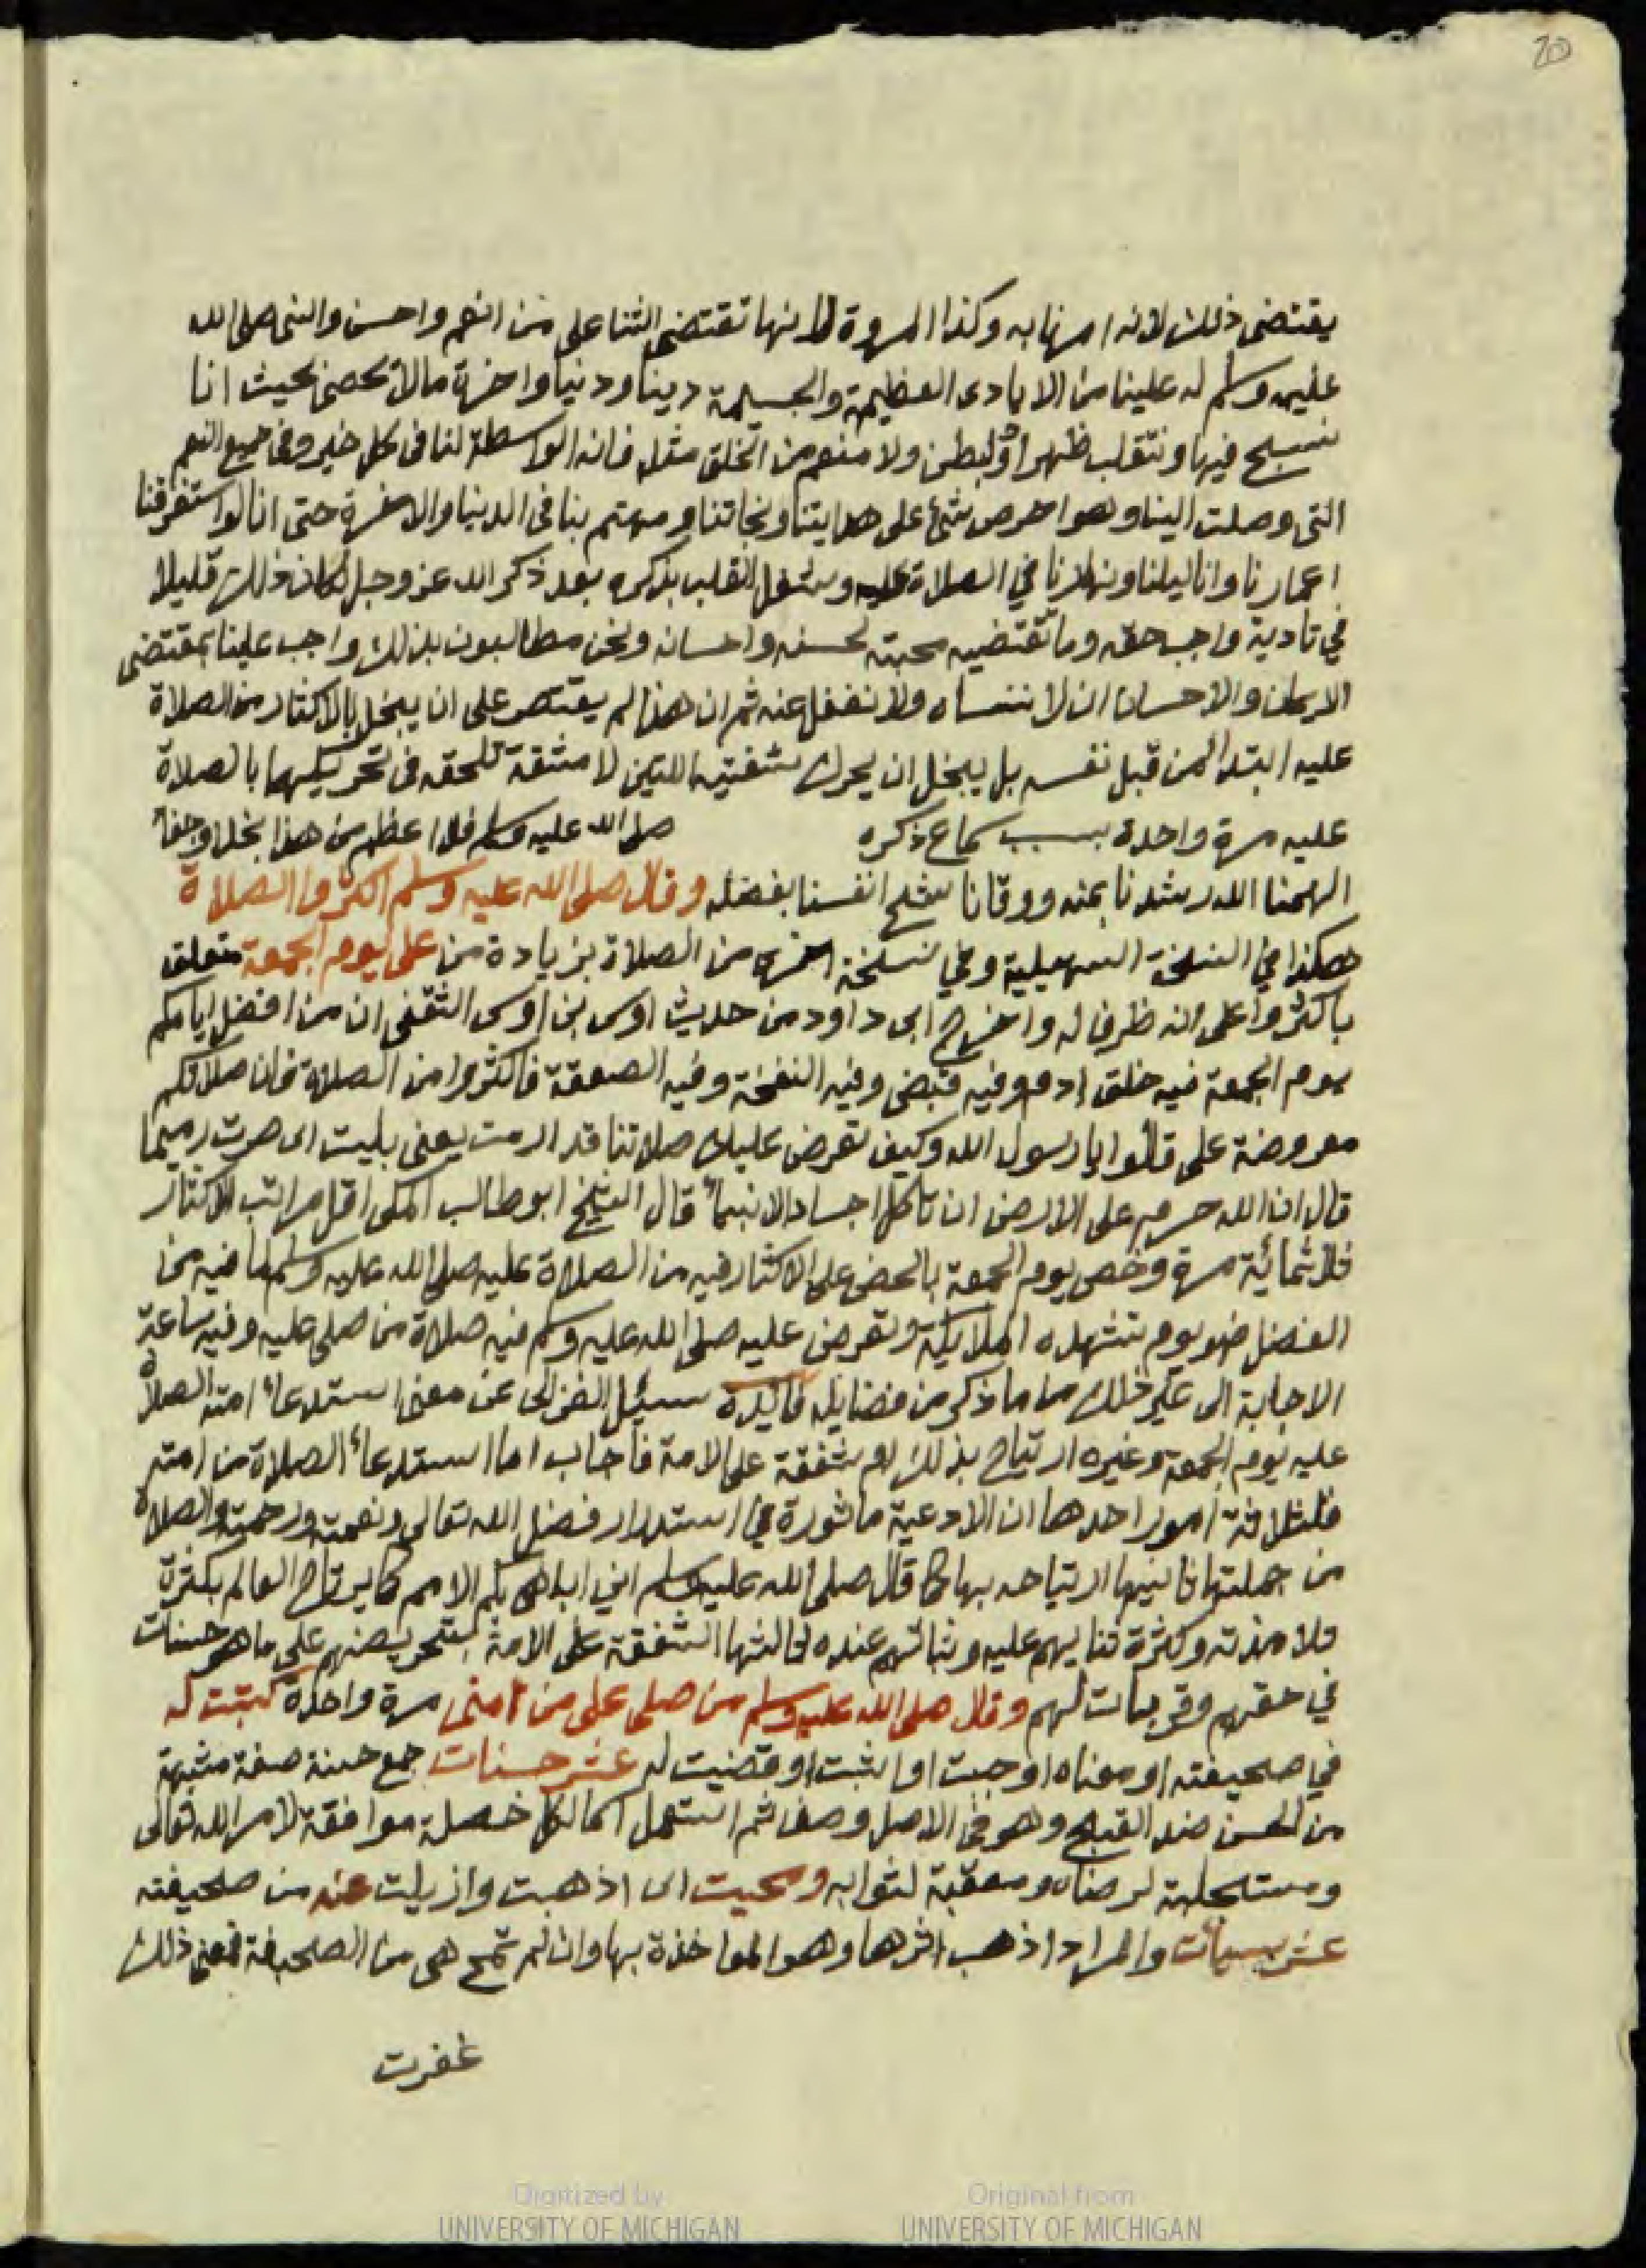 20
يقتضى ذلك لانه امرنا به وكذا المروة لانها تقتضى الثنا على من انعم واحسن والنبى صلى الله
عليه وسلم له علينا من الايادى العظيمة والجسيمة دينا ودنيا واخرة مالا يحصى بحيث انا
نسبح فيها ونتقلب ظهرا ولبطن ولا منعم من الخلق مثله فانه الواسطة لنا فى كل خير وفى جميع النعم
التى وصلت الينا وهو احرص شئ على هدايتنا ونجاتنا ومهتم بنا فى الدنيا والاخرة حتى انا لو استغرقنا
اعمارنا وانا ليلنا ونهارنا في الصلاة عليه وشغل القلب بذكره بعد ذكر الله عز وجل لكان ذلك قليلا
في تادية واجب حقه وما تقتضيه محبته لحسنه واحسانه ونحن مطالبون بذلك واجب علينا بمقتضى
الايمان والاحسان ان لا ننساه ولا نغفل عنه ثم ان هذا لم يقتصر على ان يبخل بالاكثار من الصلاة
عليه ابتدا من قبل نفسه بل يبخل ان يحرك شفتيه اللتين لا مشقة تلحقه فى تحريكهما بالصلاة
عليه مرة واحدة بسبب سماع ذكره صلى الله عليه وسلم فلا اعظم من هذا بخلا وجفاء
الهمنا الله رشدنا بمنه ووقانا شح انفسنا بفضله وقال صلى الله عليه وسلم اكثروا الصلاة
هكذا في النسخة السهيلية وفي نسخة اخرى من الصلاة بزيادة من على يوم الجمعة متعلق
باكثروا على انه ظرف له واخرج ابى داود من حديث اوس بن اوس الثقفى ان من افضل ايامكم
يوم الجمعة فيه خلق ادم وفيه قبض وفيه النفخة وفيه الصعقة فاكثروا من الصلاة فان صلاتكم
معروضة على قالوا يا رسول الله وكيف تعرض عليك صلاتنا قد ارمت يعنى بليت اى صرت رميما
قال ان الله حرم على الارض ان تاكل اجساد الانبياء قال الشيخ ابو طالب المكى اقل مراتب الاكثار
ثلاثمائية مرة وخص يوم الجمعة بالحض على الاكثار فيه من الصلاة عليه صلى الله عليه وسلم لما فيه من
الفضل فهو يوم تشهده الملايكة وتعرض عليه صلى الله عليه وسلم فيه صلاة من صلى عليه وفيه ساعة
الاجابة الى غير ذلك مما ذكر من فضايله فائدة سئيل الغزالى عن معنى استدعاء امته الصلاة
عليه يوم الجمعة وغيره ارتياح بذلك او شفقة على الامة فاجاب اما استدعاء الصلاة من امته
فلثلاثة امور احدها ان الادعية ماثورة في استدرار فضل الله تعالى ونعمته ورحمته والصلاة
من جملتها ثانيها ارتياحه بها كما قال صلى الله عليه وسلم اني اباهى بكم الامم كما يرتاح العالم بكثرة
تلامذته وكثرة ثنايهم عليه عنده ثالثها الشفقة على الامة بتحريضهم على ما هو حسنات
في حقهم وقربات لهم وقال صلى الله عليه وسلم من صلى على من امتى مرة واحدة كتبت له
في صحيفته او معناه اوجبت او اثبت او قضيت له عشر حسنات جمع حسنة صفة مشبهة
من الحسن ضد القبح وهو في الاصل وصف ثم استعمل خصلة موافقة لامر الله تعالى
ومستجلبة لرضاه ومعقبة لثوابه ومحيت اى اذهبت وازيلت عنه من صحيفته
عشر سيأت والمراد اذهب اثرها وهو المواخذة بها وان لم تمح هى من الصحيفة فمعنى ذلك
غفرت
Digitized by UNIVERSITY OF MICHIGAN
Original from UNIVERSITY OF MICHIGAN